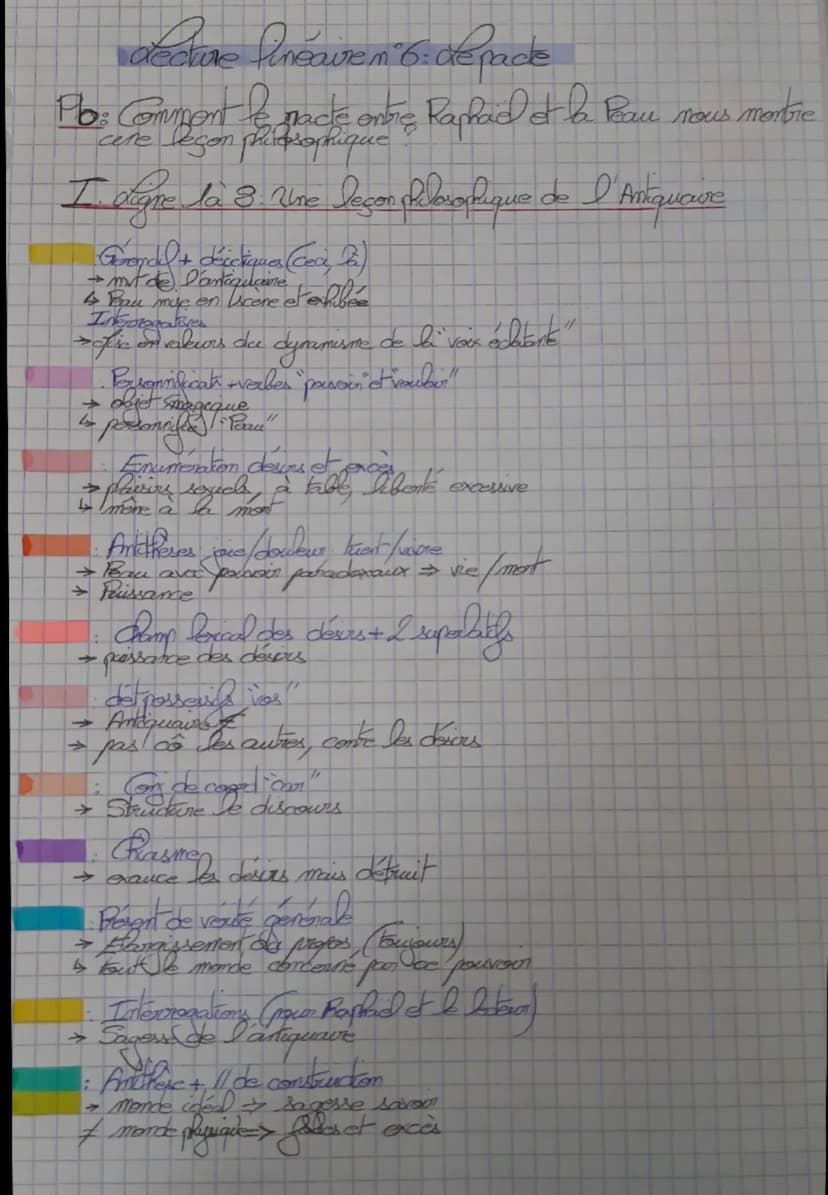 Lecture linéaire n°6: Le pacte
Pb: Comment le pacte entre Raphaël et la Peau nous montre
une leçon philosophique?
I. Ligne 1 à 8: Une leçon philosophique de l'Antiquaire
Gérondif + déictiques (ceci, là)
→ mvt de l'antiquaire
↳ Peau mise en scène et exhibée
Interrogatives
→ en valeurs du dynamisme de la "voix éclatante"
: Personnificat + verbes "pouvoir" et "vouloir"
→ objet magique
↳ personnifié: "Peau"
: Enumération désirs et excès
→ plaisirs, à table, liberté excessive
↳ mène à la mort
: Antithèses joie/douleur tuent/vivre
→ Peau avec pouvoir paradoxaux ⇒ vie/mort
→ Puissance
: Champ lexical des désirs + 2 superlatifs
→ puissance des désirs
: dét possessifs "vos"
→ Antiquaire ≠
→ pas les autres, contre les désirs
: Conj de coord "car"
→ Structure le discours
: Chiasme
→ exauce les désirs mais détruit
: Présent de vérité générale
→ Elargissement du propos (toujours)
↳ tout le monde concerné par ce pouvoir
: Interrogations (pour Raphaël et le lecteur)
→ Sagesse de l'antiquaire
: Antithèse + // de construction
→ monde idéal ⇒ sagesse savoir
≠ monde physique ⇒ et excès